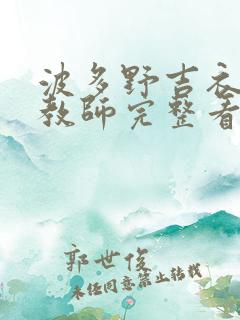 波多野吉衣
教師完整看
郭世俊
未经同意禁止转载